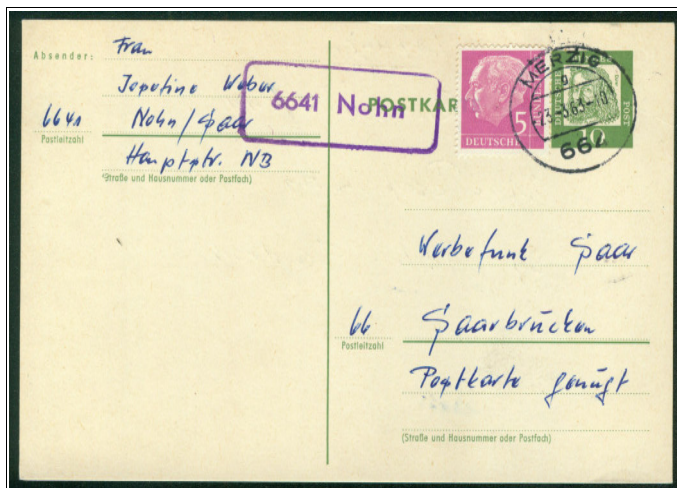 Absender:
Frau
Josefine Weber
6641 Nohn/Saar
Postleitzahl
Hauptstr. NB
(Straße und Hausnummer oder Postfach)
6641 Nohn
POSTKAR
5
DEUTSCHE
MERZIG
662
10
POST
Werbefunk Saar
66 Saarbrücken
Postleitzahl
Postkarte genügt
(Straße und Hausnummer oder Postfach)